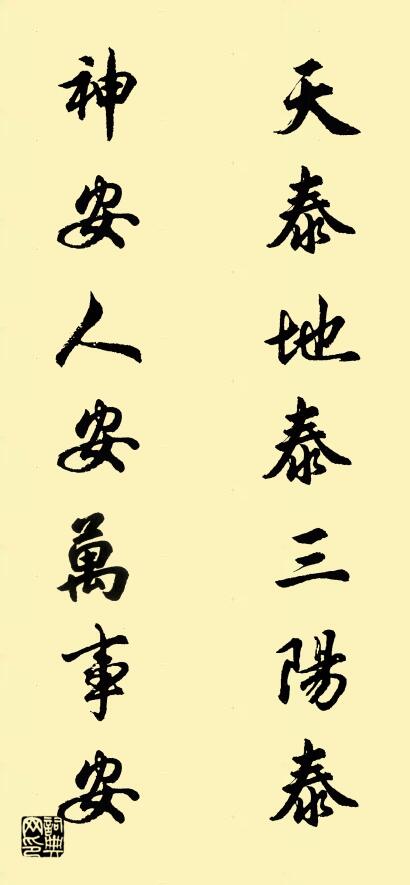 天泰地泰三陽泰
神安人安萬事安
詞典
网印